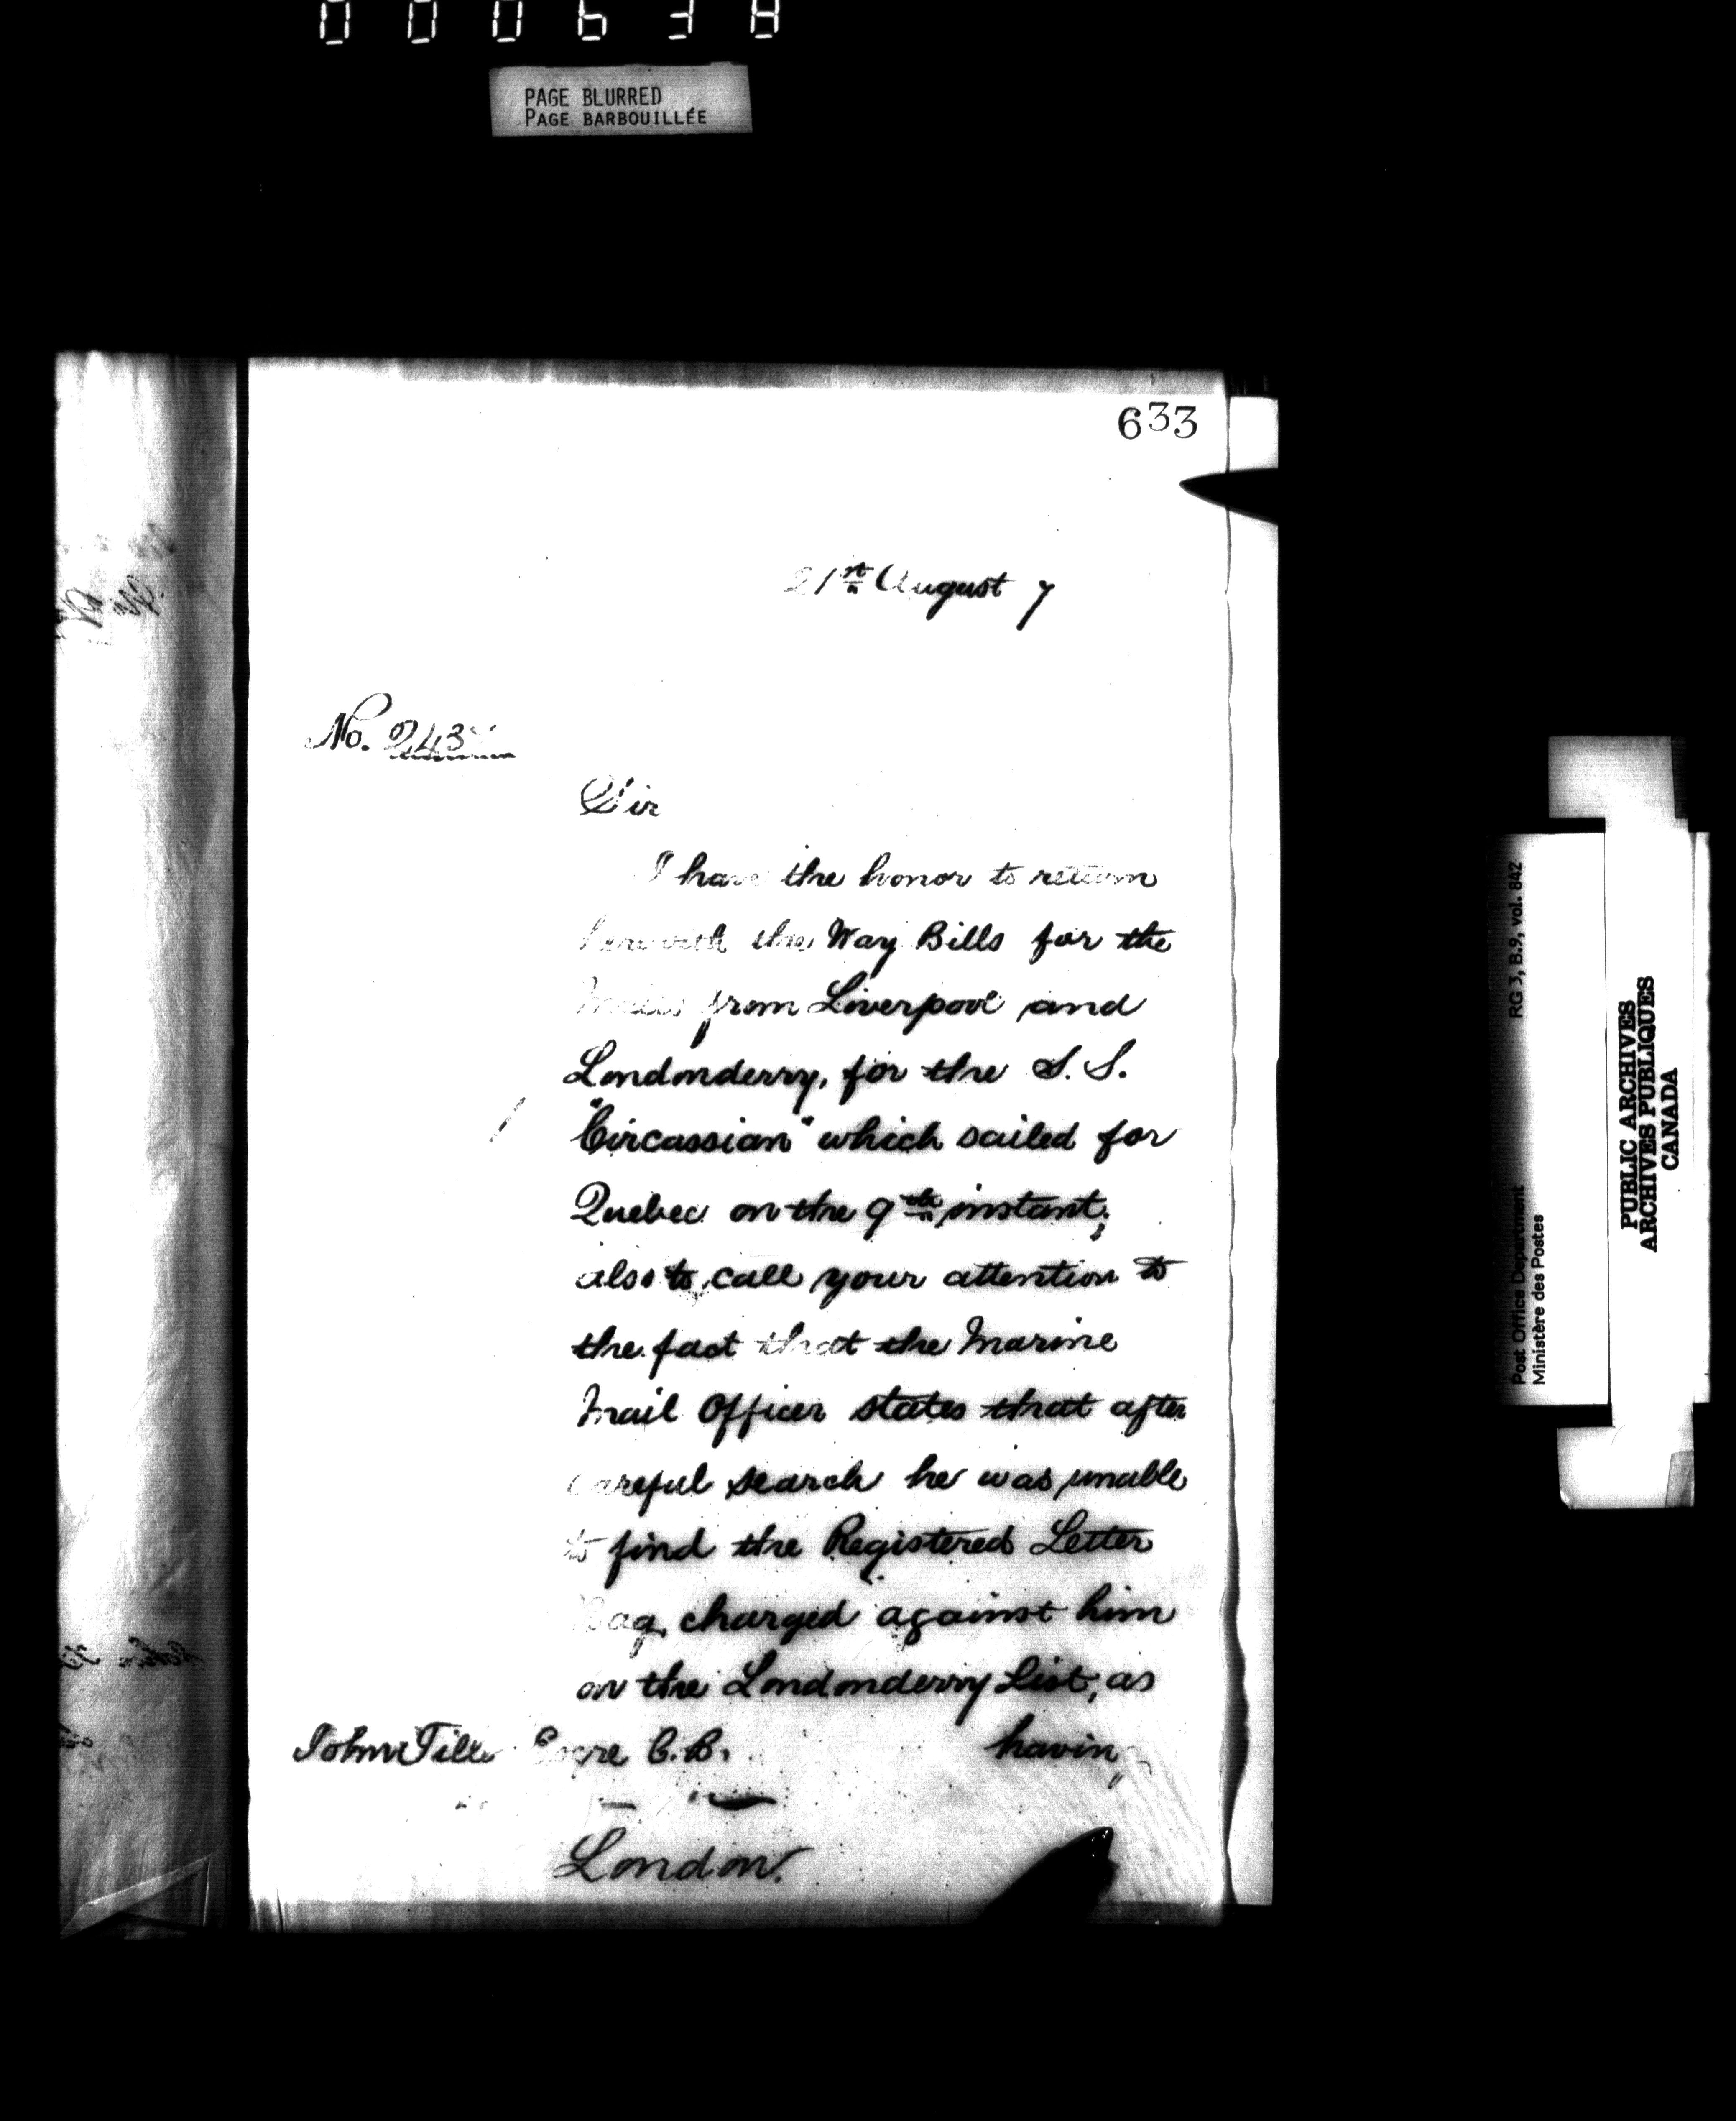 PAGE BLURRED
PAGE BARBOUILLÉE
633
21st August 7
No. 243
Sir
I have the honor to return
herewith the Way Bills for the
Mails from Liverpool and
Londonderry, for the S. S.
"Circassian" which sailed for
Quebec on the 9th instant;
also to call your attention to
the fact that the Marine
Mail Officer states that after
careful search he was unable
to find the Registered Letter
Bag charged against him
on the Londonderry List, as
having
John Tilley Esqre C.B.
London.
Post Office Department RG 3, B.9, vol. 842
Ministère des Postes
PUBLIC ARCHIVES
ARCHIVES PUBLIQUES
CANADA